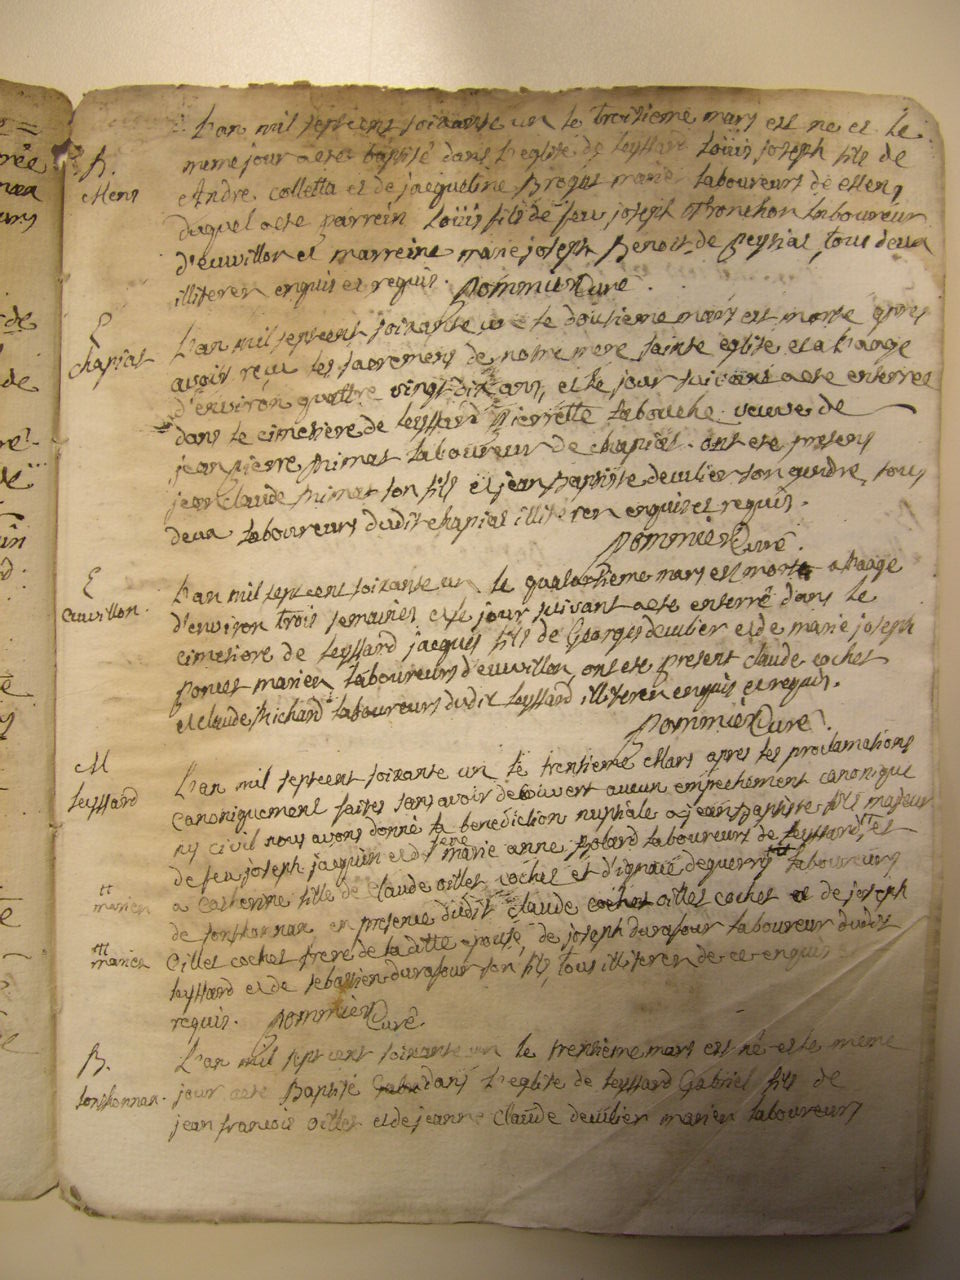 L'an mil septcent soixante un le troisieme mars est ne et le
B.
meme jour a eté baptisé dans l'eglise de leyssard Loüis joseph fils de
Mens
Andre colletta et de jacqueline Brogat mariés laboureurs de Mens,
duquel a ete parrein Loüis fils de feu joseph Tronchon laboureur
d'euvillon et marreine marie joseph Benoit de Peysiat, tous deux
illiteren enquis et requis. Pommier Curé.
E
L'an mil septcent soixante un le dousieme mars est morte apres
chapiat
avoir reçu les sacremens de notre mere sainte eglise et a l'aage
d'environ quattre vingt dix ans, et le jour suivant a ete enterree
dans le cimetiere de leyssard pierrette labouche veuve de
jean pierre Primat laboureur de chapiat. ont ete presens
jean claude Primat son fils et jean Baptiste deculier son gendre, tous
deux laboureurs dudit chapiat illiteren enquis et requis.
Pommier Curé.
E
L'an mil septcent soixante un le quatorsieme mars est mort a l'aage
euvillon.
d'environ trois semaines et le jour suivant a eté enterré dans le
cimetiere de leyssard jacques fils de George deculier et de marie joseph
poncet marien laboureurs d'euvillon, ont ete present claude cochet
et claude Richard laboureurs dudit leyssard illiteren enquis et requis.
Pommier Curé.
M
L'an mil septcent soixante un le trentieme Mars apres les proclamations
leyssard
canoniquement faites sans avoir decouvert aucun empechement canonique
ny civil nous avons donné la benediction nuptiale a jean Baptiste fils majeur
de feu joseph jacquin et de marie anne Rolard laboureurs de leyssard, et
a catherine fille de Claude oillet cochet et d'ignace deguerry laboureurs
marien
de sonthonnax en presence dudit claude cochet oillet cochet et de joseph
Oillet cochet frere de la ditte epouse, de joseph durafour laboureur dudit
marien
leyssard et de sebastien durafour son fils, tous illiteren de ce enquis
requis. Pommier Curé.
B.
L'an mil sept cent soixante un le trentieme mars est né et le meme
sonthonnax.
jour a eté Baptisé dans l'eglise de leyssard Gabriel fils de
jean francois oillet et de jeanne Claude deculier marien laboureurs